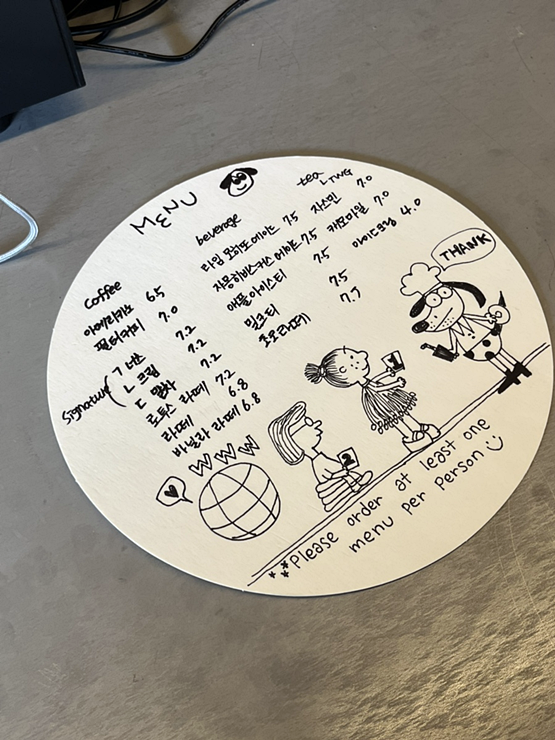 MENU
Coffee
아메리카노 6.5
필터커피 7.0
Signature
ㄱ 너츠 7.2
ㄴ 크림 7.2
ㄷ 7.2
로투스 라떼 7.2
라떼 6.8
바닐라 라떼 6.8
beverage
타임 모히또에이드 7.5
자몽히비스커스에이드 7.5
애플아이스티 7.5
밀크티 7.5
초코라떼 7.7
tea
TWG
자스민 7.0
캐모마일 7.0
아이스크림 4.0
THANK
WWW
2
**Please order at least one
menu per person